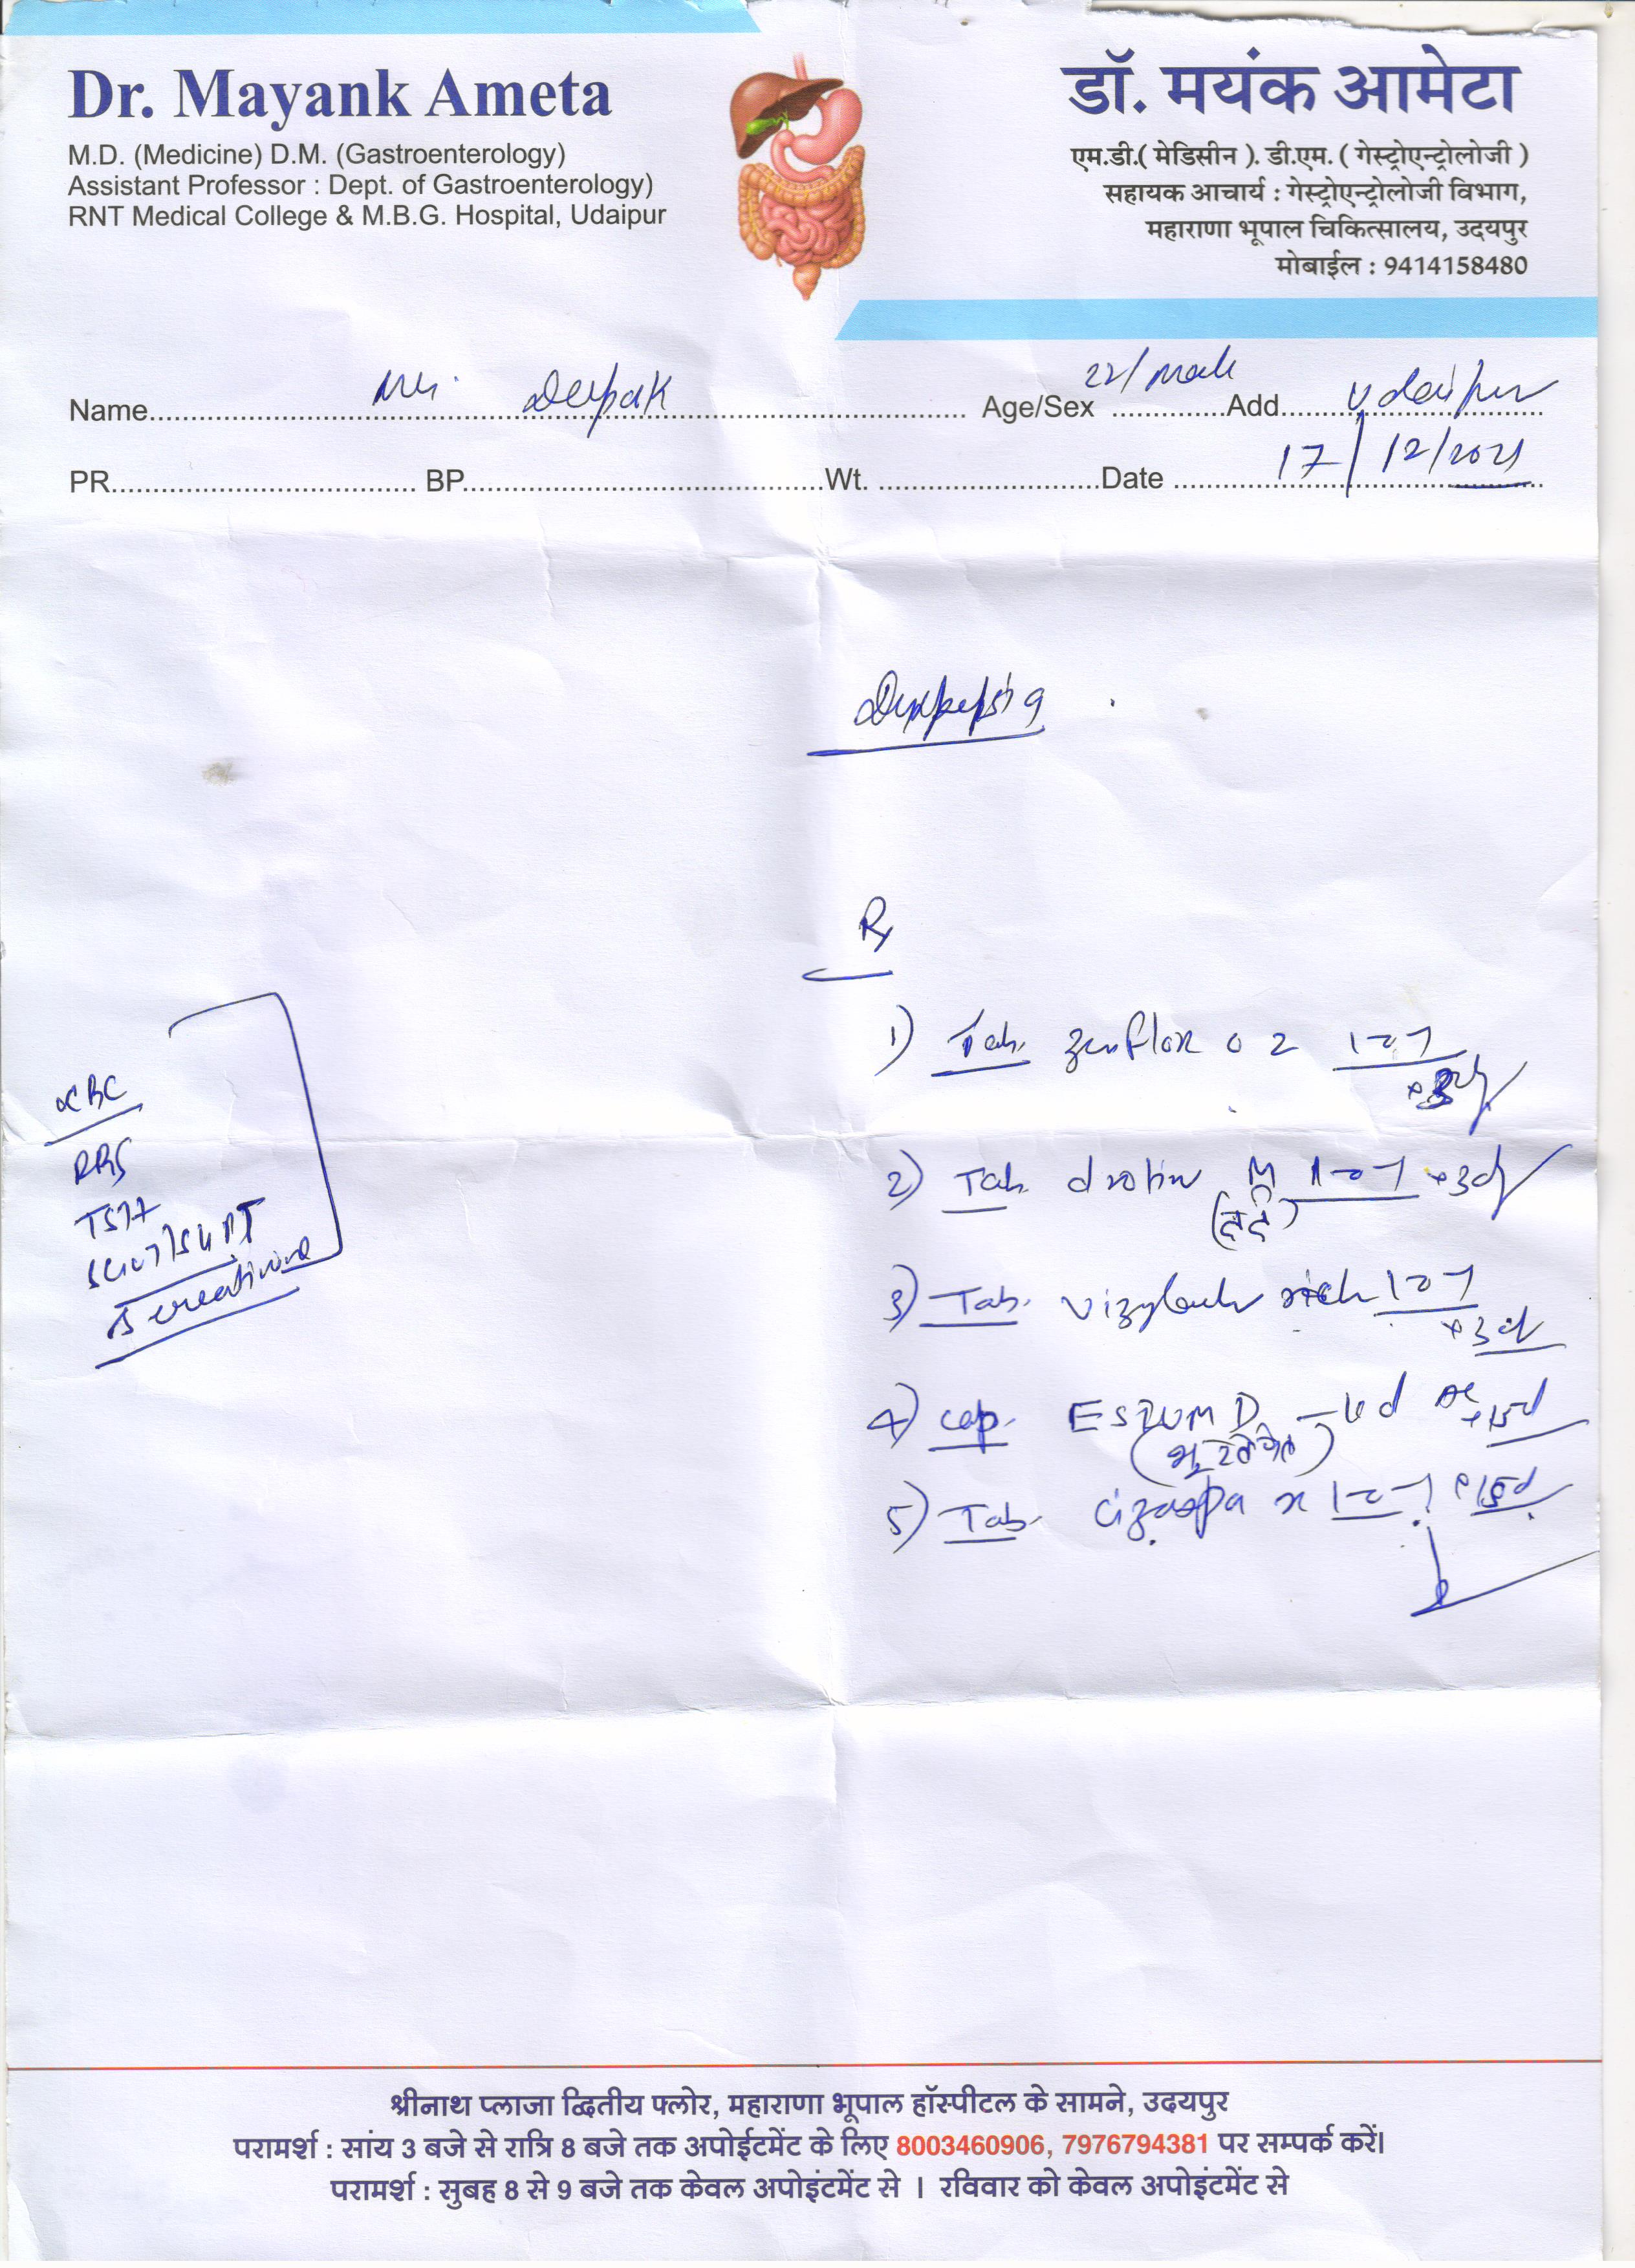 Dr. Mayank Ameta
M.D. (Medicine) D.M. (Gastroenterology)
Assistant Professor : Dept. of Gastroenterology)
RNT Medical College & M.B.G. Hospital, Udaipur
डॉ. मयंक आमेटा
एम.डी.( मेडिसीन ). डी.एम. ( गेस्ट्रोएन्ट्रोलोजी )
सहायक आचार्य : गेस्ट्रोएन्ट्रोलोजी विभाग,
महाराणा भूपाल चिकित्सालय, उदयपुर
मोबाईल : 9414158480
Name Deepak Age/Sex 22/Male Add. Udaipur
PR BP Wt. Date 17/12/2021
Dyspepsia
Rx
1) Tab. Zenflox OZ 1-0-1
x 3d
2) Tab Drotin M 1-0-1 x 3d
(दर्द)
3) Tab. Vizylac rich 1-0-1
x 3d
4) Cap. D
5) Tab. Cizaspa X 1-0-1 x 15d
CBC
RBS
TSH
SGOT/SGPT
S creatinine
श्रीनाथ प्लाजा द्वितीय फ्लोर, महाराणा भूपाल हॉस्पीटल के सामने, उदयपुर
परामर्श : सांय 3 बजे से रात्रि 8 बजे तक अपोईटमेंट के लिए 8003460906, 7976794381 पर सम्पर्क करें।
परामर्श : सुबह 8 से 9 बजे तक केवल अपोइंटमेंट से । रविवार को केवल अपोइंटमेंट से